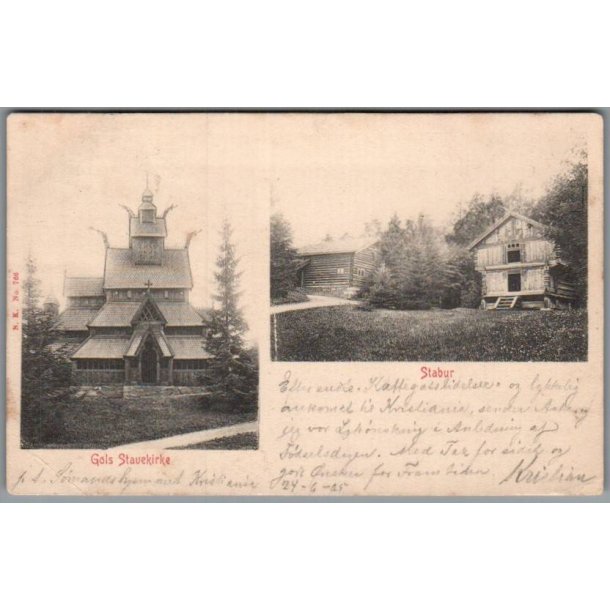 N. K. No. 766
Gols Stavekirke
Stabur
Efter endt og lykkelig
ankomst til Kristiania, sender
jeg vor Lykønskning i Anledning af
Fødselsdagen. Med Tak for sidst og
godt Ønsker for Fremtiden
Kristian
p. t. Sømandshjemmet Kristiania
24-6-05